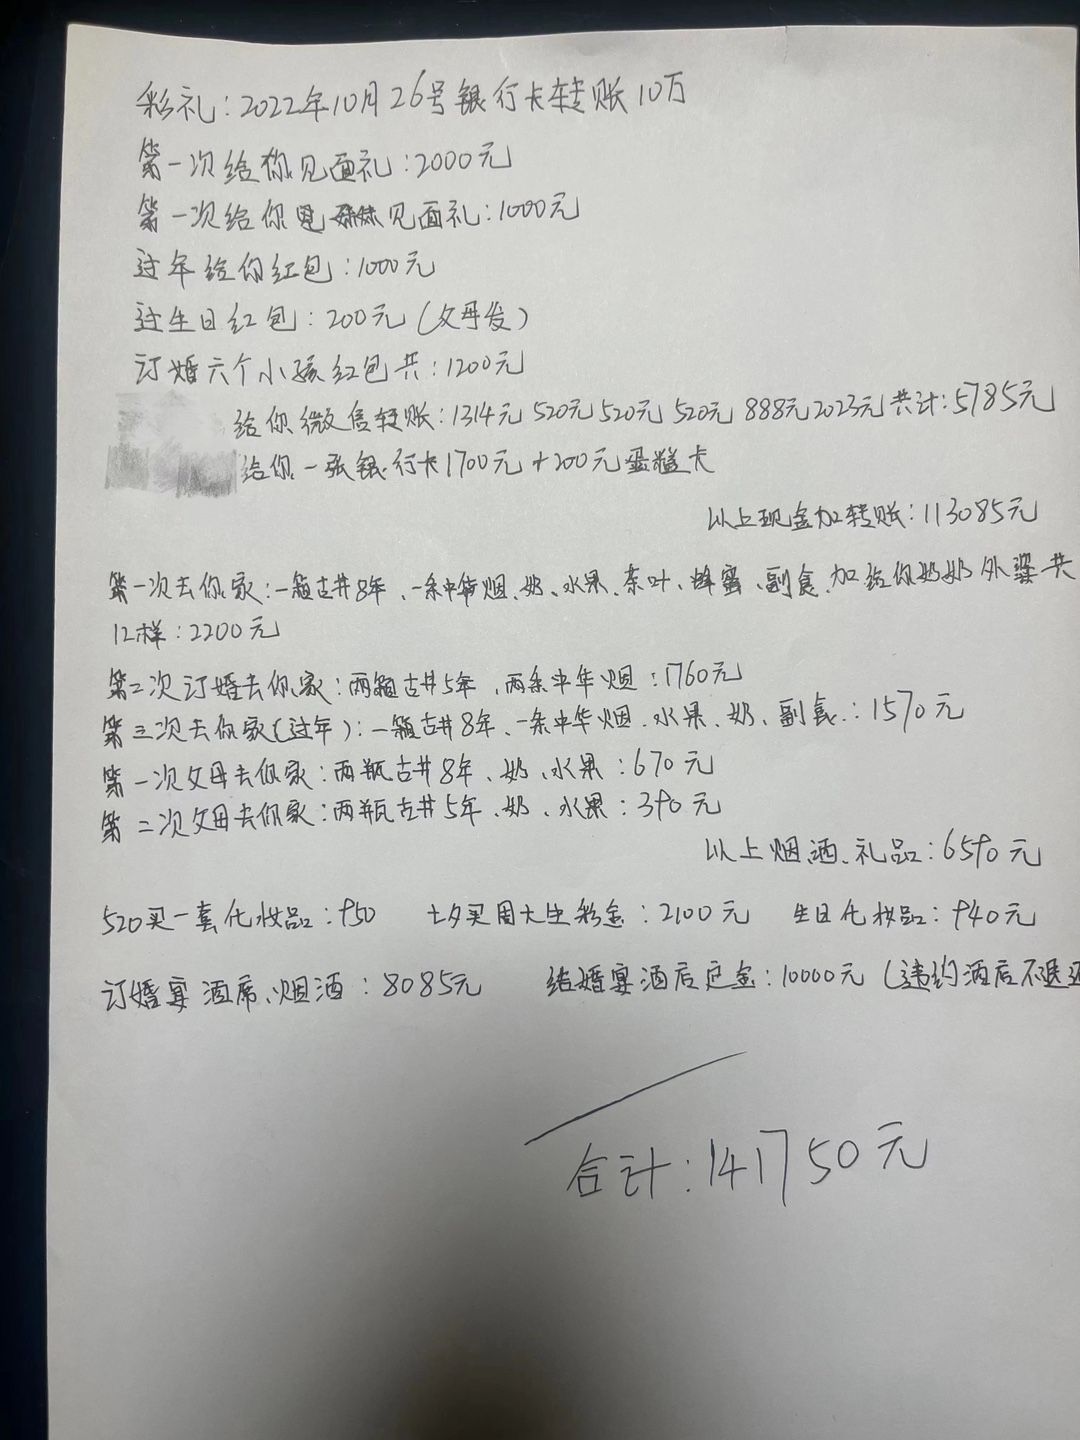 彩礼：2022年10月26号银行卡转账10万
第一次给你见面礼：2000元
第一次给你妹妹见面礼：1000元
过年给你红包：1000元
过生日红包：200元（父母发）
订婚六个小孩红包共：1200元
给你微信转账：1314元 520元 520元 520元 888元 2023元 共计：5785元
给你一张银行卡1700元+200元蛋糕卡
以上现金加转账：113085元
第一次去你家：一箱古井8年、一条中华烟、奶、水果、茶叶、蜂蜜、副食、加给你奶奶外婆共
12样：2200元
第二次订婚去你家：两箱古井5年、两条中华烟：1760元
第三次去你家（过年）：一箱古井8年、一条中华烟、水果、奶、副食：1570元
第一次父母去你家：两瓶古井8年、奶、水果：670元
第二次父母去你家：两瓶古井5年、奶、水果：390元
以上烟、酒、礼品：6590元
520买一套化妆品：950 七夕买周大生彩金：2100元 生日化妆品：940元
订婚宴酒席、烟酒：8085元 结婚宴酒店定金：10000元（违约酒店不退还
合计：141750元